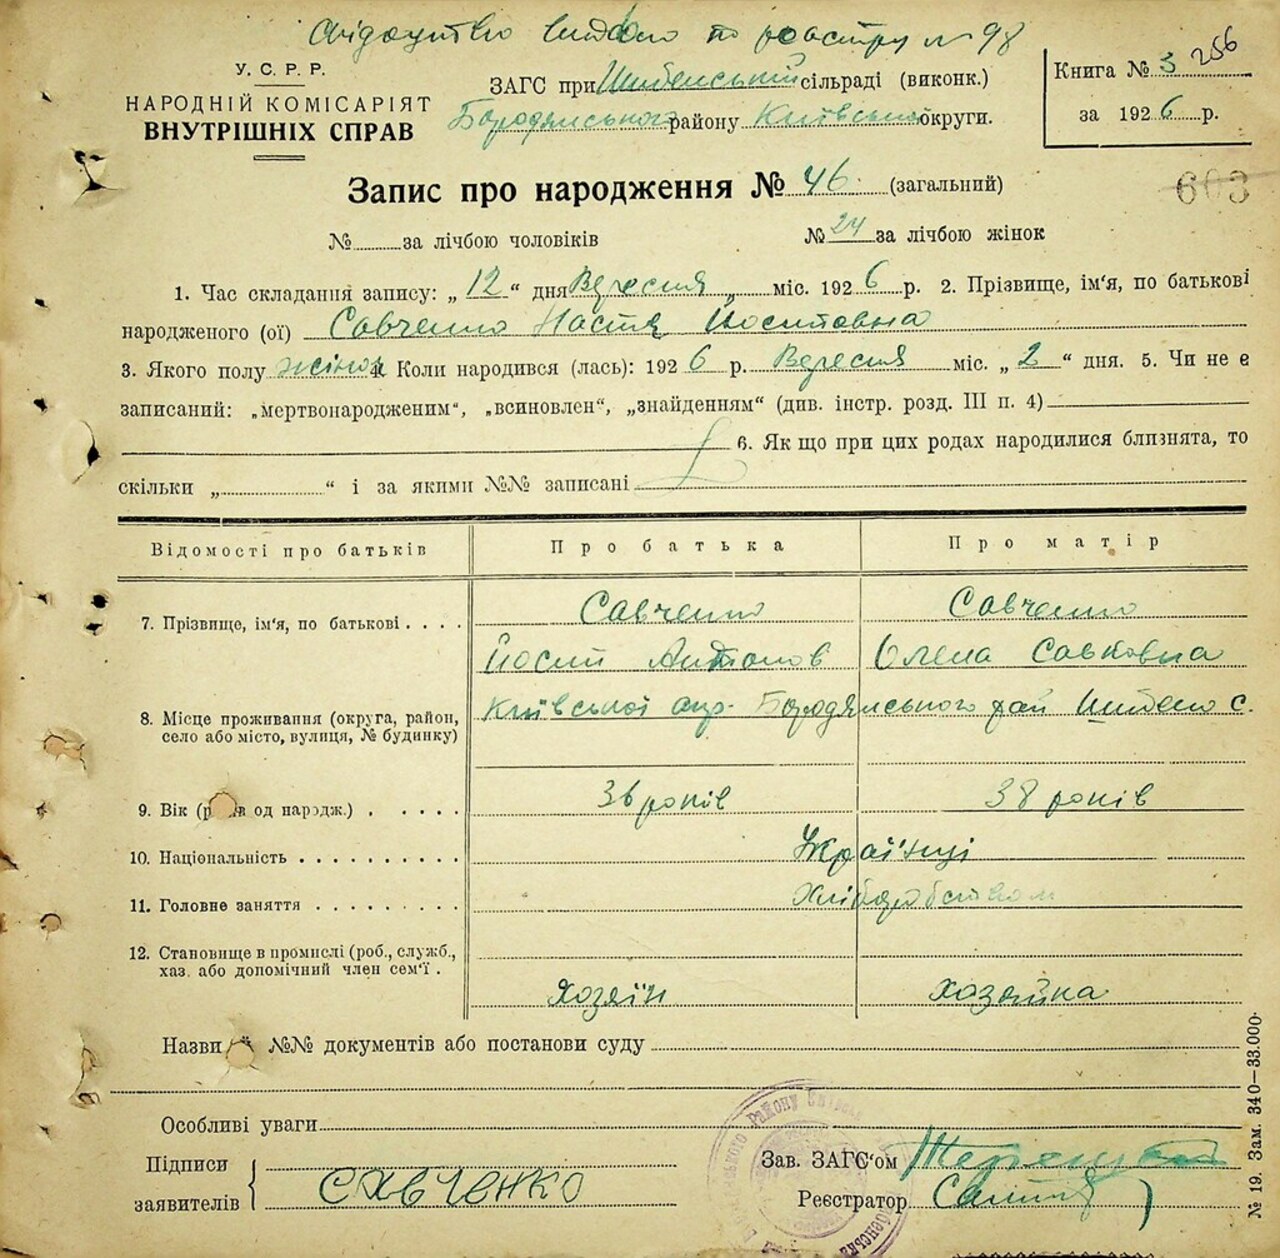 Свідоцтво видано по реєстру № 98
У. С. Р. Р.
НАРОДНІЙ КОМІСАРІЯТ
ВНУТРІШНІХ СПРАВ
ЗАГС при Шибенській сільраді (виконк.)
Бородянського району Київської округи.
Книга № 3 256
за 1926 р.
Запис про народження № 46 (загальний)
603
№ за лічбою чоловіків № 24 за лічбою жінок
1. Час складання запису: „12“ дня Вересня міс. 1926 р. 2. Прізвище, ім'я, по батькові
народженого (ої) Савченко Настя Йосиповна
3. Якого полу жіноч 4. Коли народився (лась): 1926 р. Вересня міс. „2“ дня. 5. Чи не є
записаний: „мертвонародженим“, „всиновлен“, „знайденням“ (див. інстр. розд. III п. 4)
6. Як що при цих родах народилися близнята, то
скільки „ “ і за якими №№ записані
Відомості про батьків Про батька Про матір
7. Прізвище, ім'я, по батькові . . . . Савченко Савченко
Йосип Антонов Олена Савковна
8. Місце проживання (округа, район, село або місто, вулиця, № будинку) Київської окр. Бородянського рай Шибено с.
9. Вік (р в од народж.) . . . . . 36 років 38 років
10. Національність . . . . . . . . . . Українці
11. Головне заняття . . . . . . . . . Хліборобством
12. Становище в промислі (роб., служб.,
хаз. або допомічний член сем'ї .
Хозяїн Хозяйка
Назви й №№ документів або постанови суду
Особливі уваги
Підписи
заявителів
САВЧЕНКО
Зав. ЗАГС'ом
Реєстратор
№ 19. Зам. 340—33.000